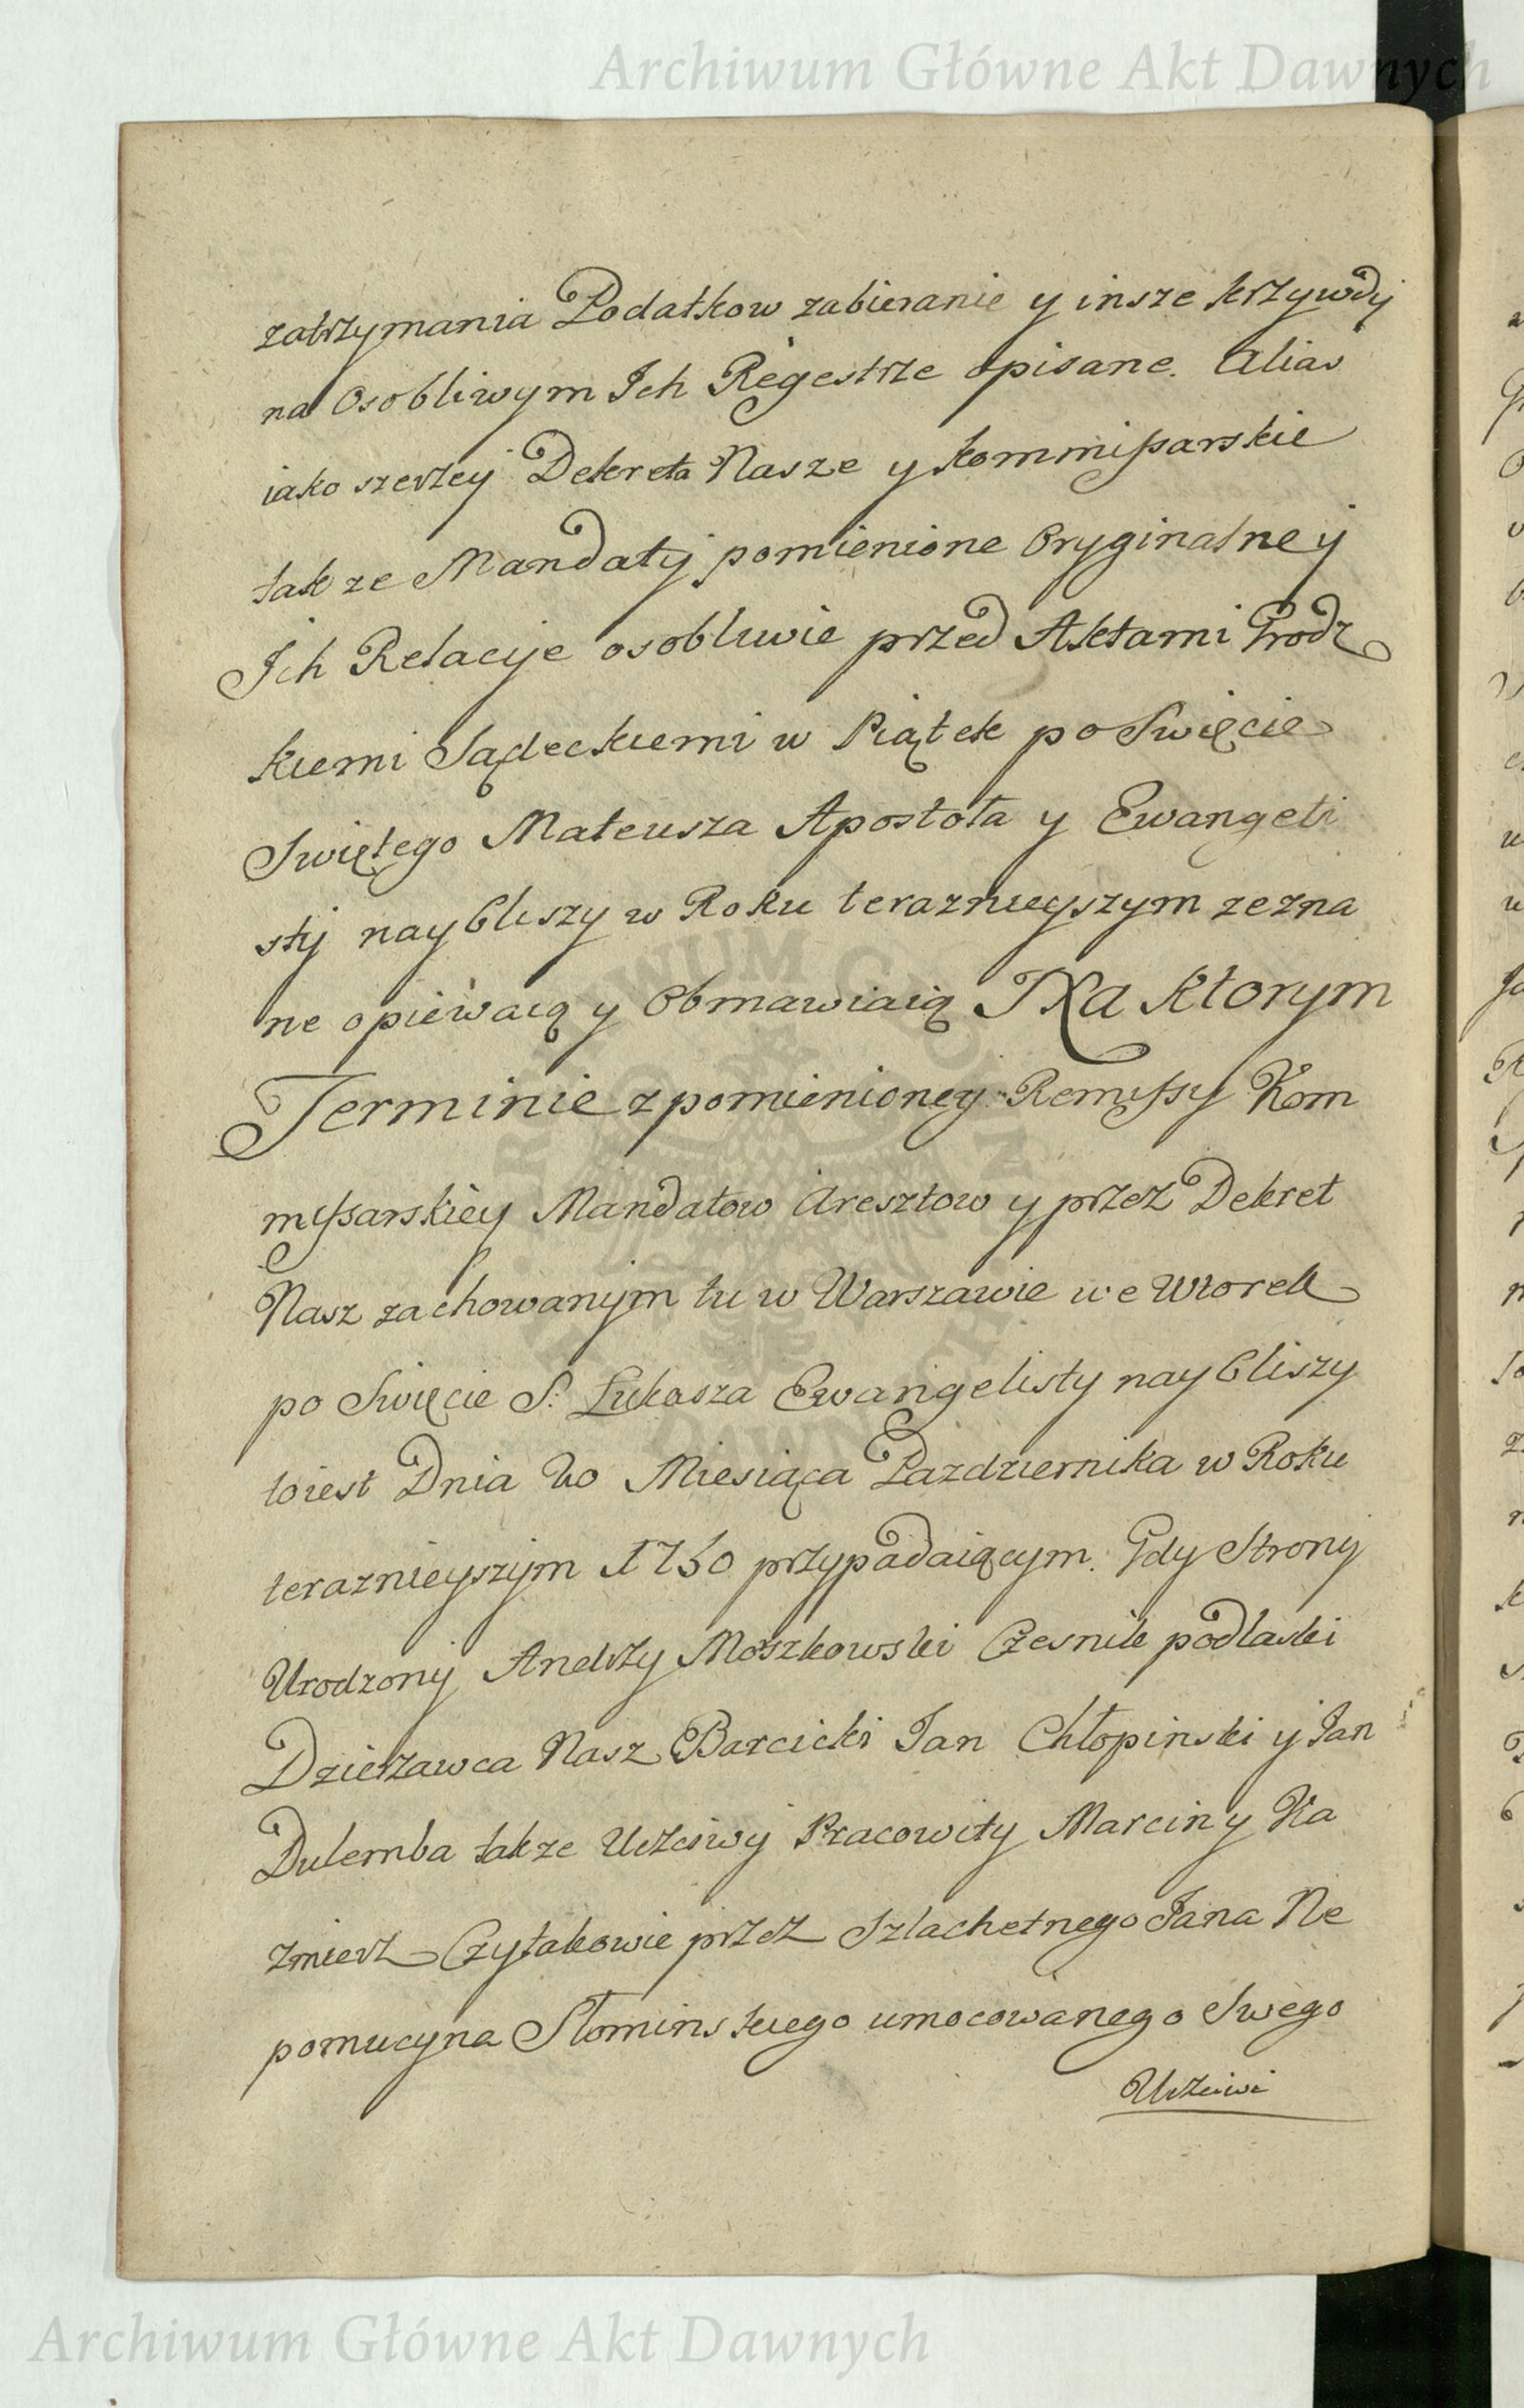 Archiwum Główne Akt Dawnych
zatrzymania Podatkow zabieranie y insze krzywdy
na Osobliwym Ich Regestrze opisane. Alias
iako szerzey Dekreta Nasze y Kommissarskie
takze Mandaty pomienione Oryginalne y
Ich Relacye osobliwie przed Aktami Grodz
kiemi Sądeckiemi w Piątek po Swięcie
Swiętego Mateusza Apostoła y Ewangeli
sty naybliszy w Roku teraznieyszym zezna
ne opiewaią y Obmawiaią Na Ktorym
Terminie z pomienioney Remissy Kom
missarskiey Mandatow Aresztow y przez Dekret
Nasz zachowanym tu w Warszawie we Wtorek
po Swięcie S: Łukasza Ewangelisty naybliszy
toiest Dnia 20 Miesiąca Pazdziernika w Roku
teraznieyszym 1750 przypadaiącym. Gdy Strony
Urodzony Andrzy Moszkowski Czesnik podlaski
Dzierzawca Nasz Barcicki Jan Chłopinski y Jan
Dulemba takze Uczciwy Pracowity Marcin y Ka
zmierz Czytakowie przez Szlachetnego Jana Ne
pomucyna Słominskiego umocowanego Swego
Uczciwi
Archiwum Główne Akt Dawnych